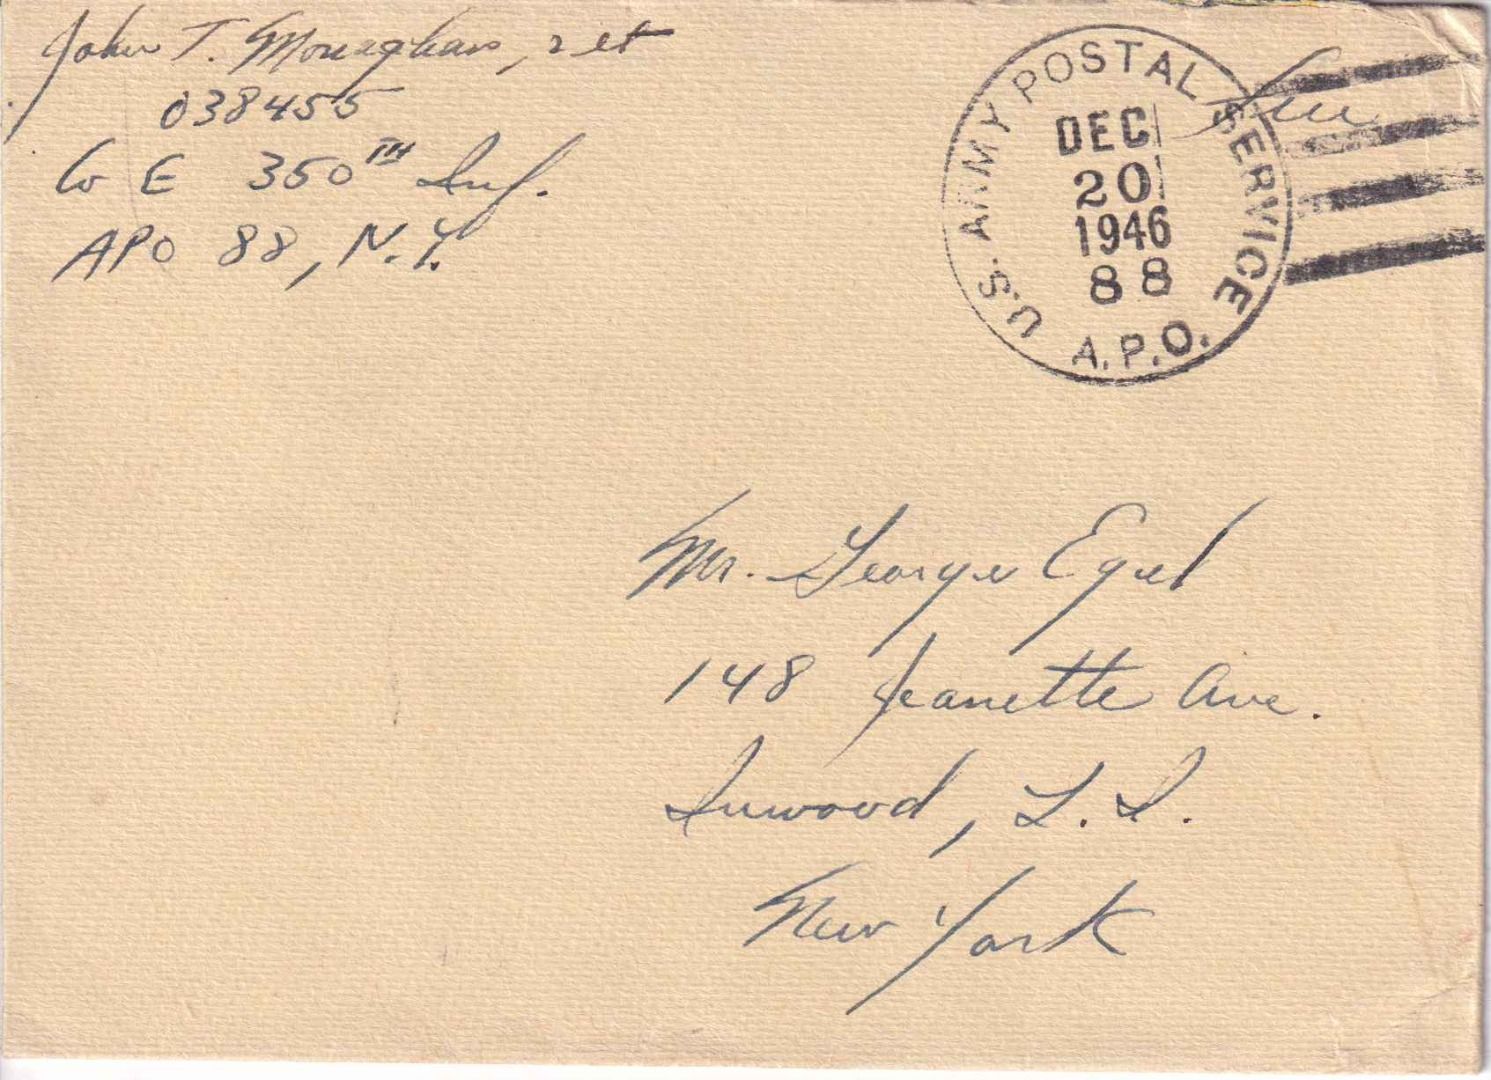 John T. Monaghan, 2 Lt
038455
Co E 350TH Inf.
APO 88, N.Y.
Free
U.S. ARMY POSTAL SERVICE
DEC
20
1946
88
A.P.O.
Mr. George Egel
148 Jeanette Ave.
Inwood, L.I.
New York